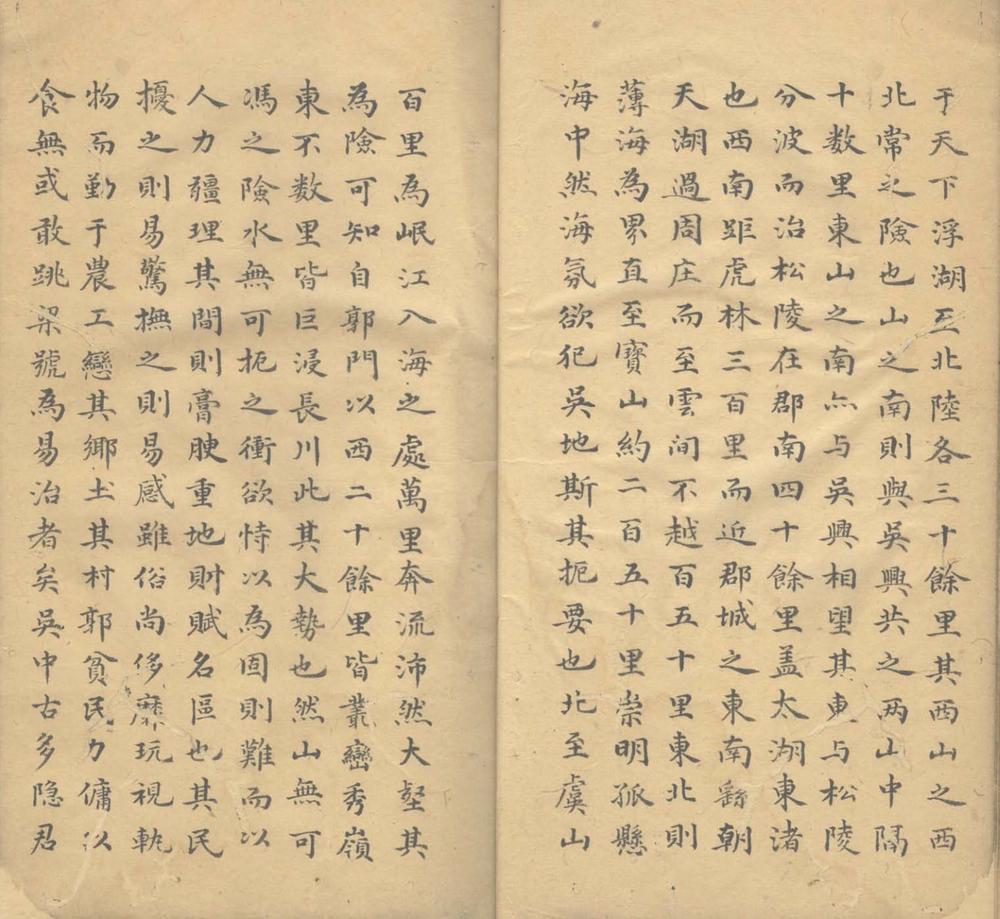 于天下浮湖至北陸各三十餘里其西山之西
北常之險也山之南則與吳興共之两山中隔
十数里東山之南亦与吳興相望其東与松陵
分波而治松陵在郡南四十餘里盖太湖東渚
也西南距虎林三百里而近郡城之東南繇朝
天湖過周庄而至雲间不越百五十里東北則
薄海為界直至寶山約二百五十里崇明孤懸
海中然海氛欲犯吳地斯其扼要也北至虞山
百里為岷江入海之處萬里奔流沛然大壑其
為險可知自郭門以西二十餘里皆叢巒秀嶺
東不数里皆巨浸長川此其大勢也然山無可
馮之險水無可扼之衝欲恃以為固則難而以
人力疆理其間則膏腴重地財賦名區也其民
擾之則易驚撫之則易感雖俗尚侈靡玩視軌
物而勤于農工戀其鄉土其村郭貧民力傭以
食無或敢跳梁號為易治者矣吳中古多隐君